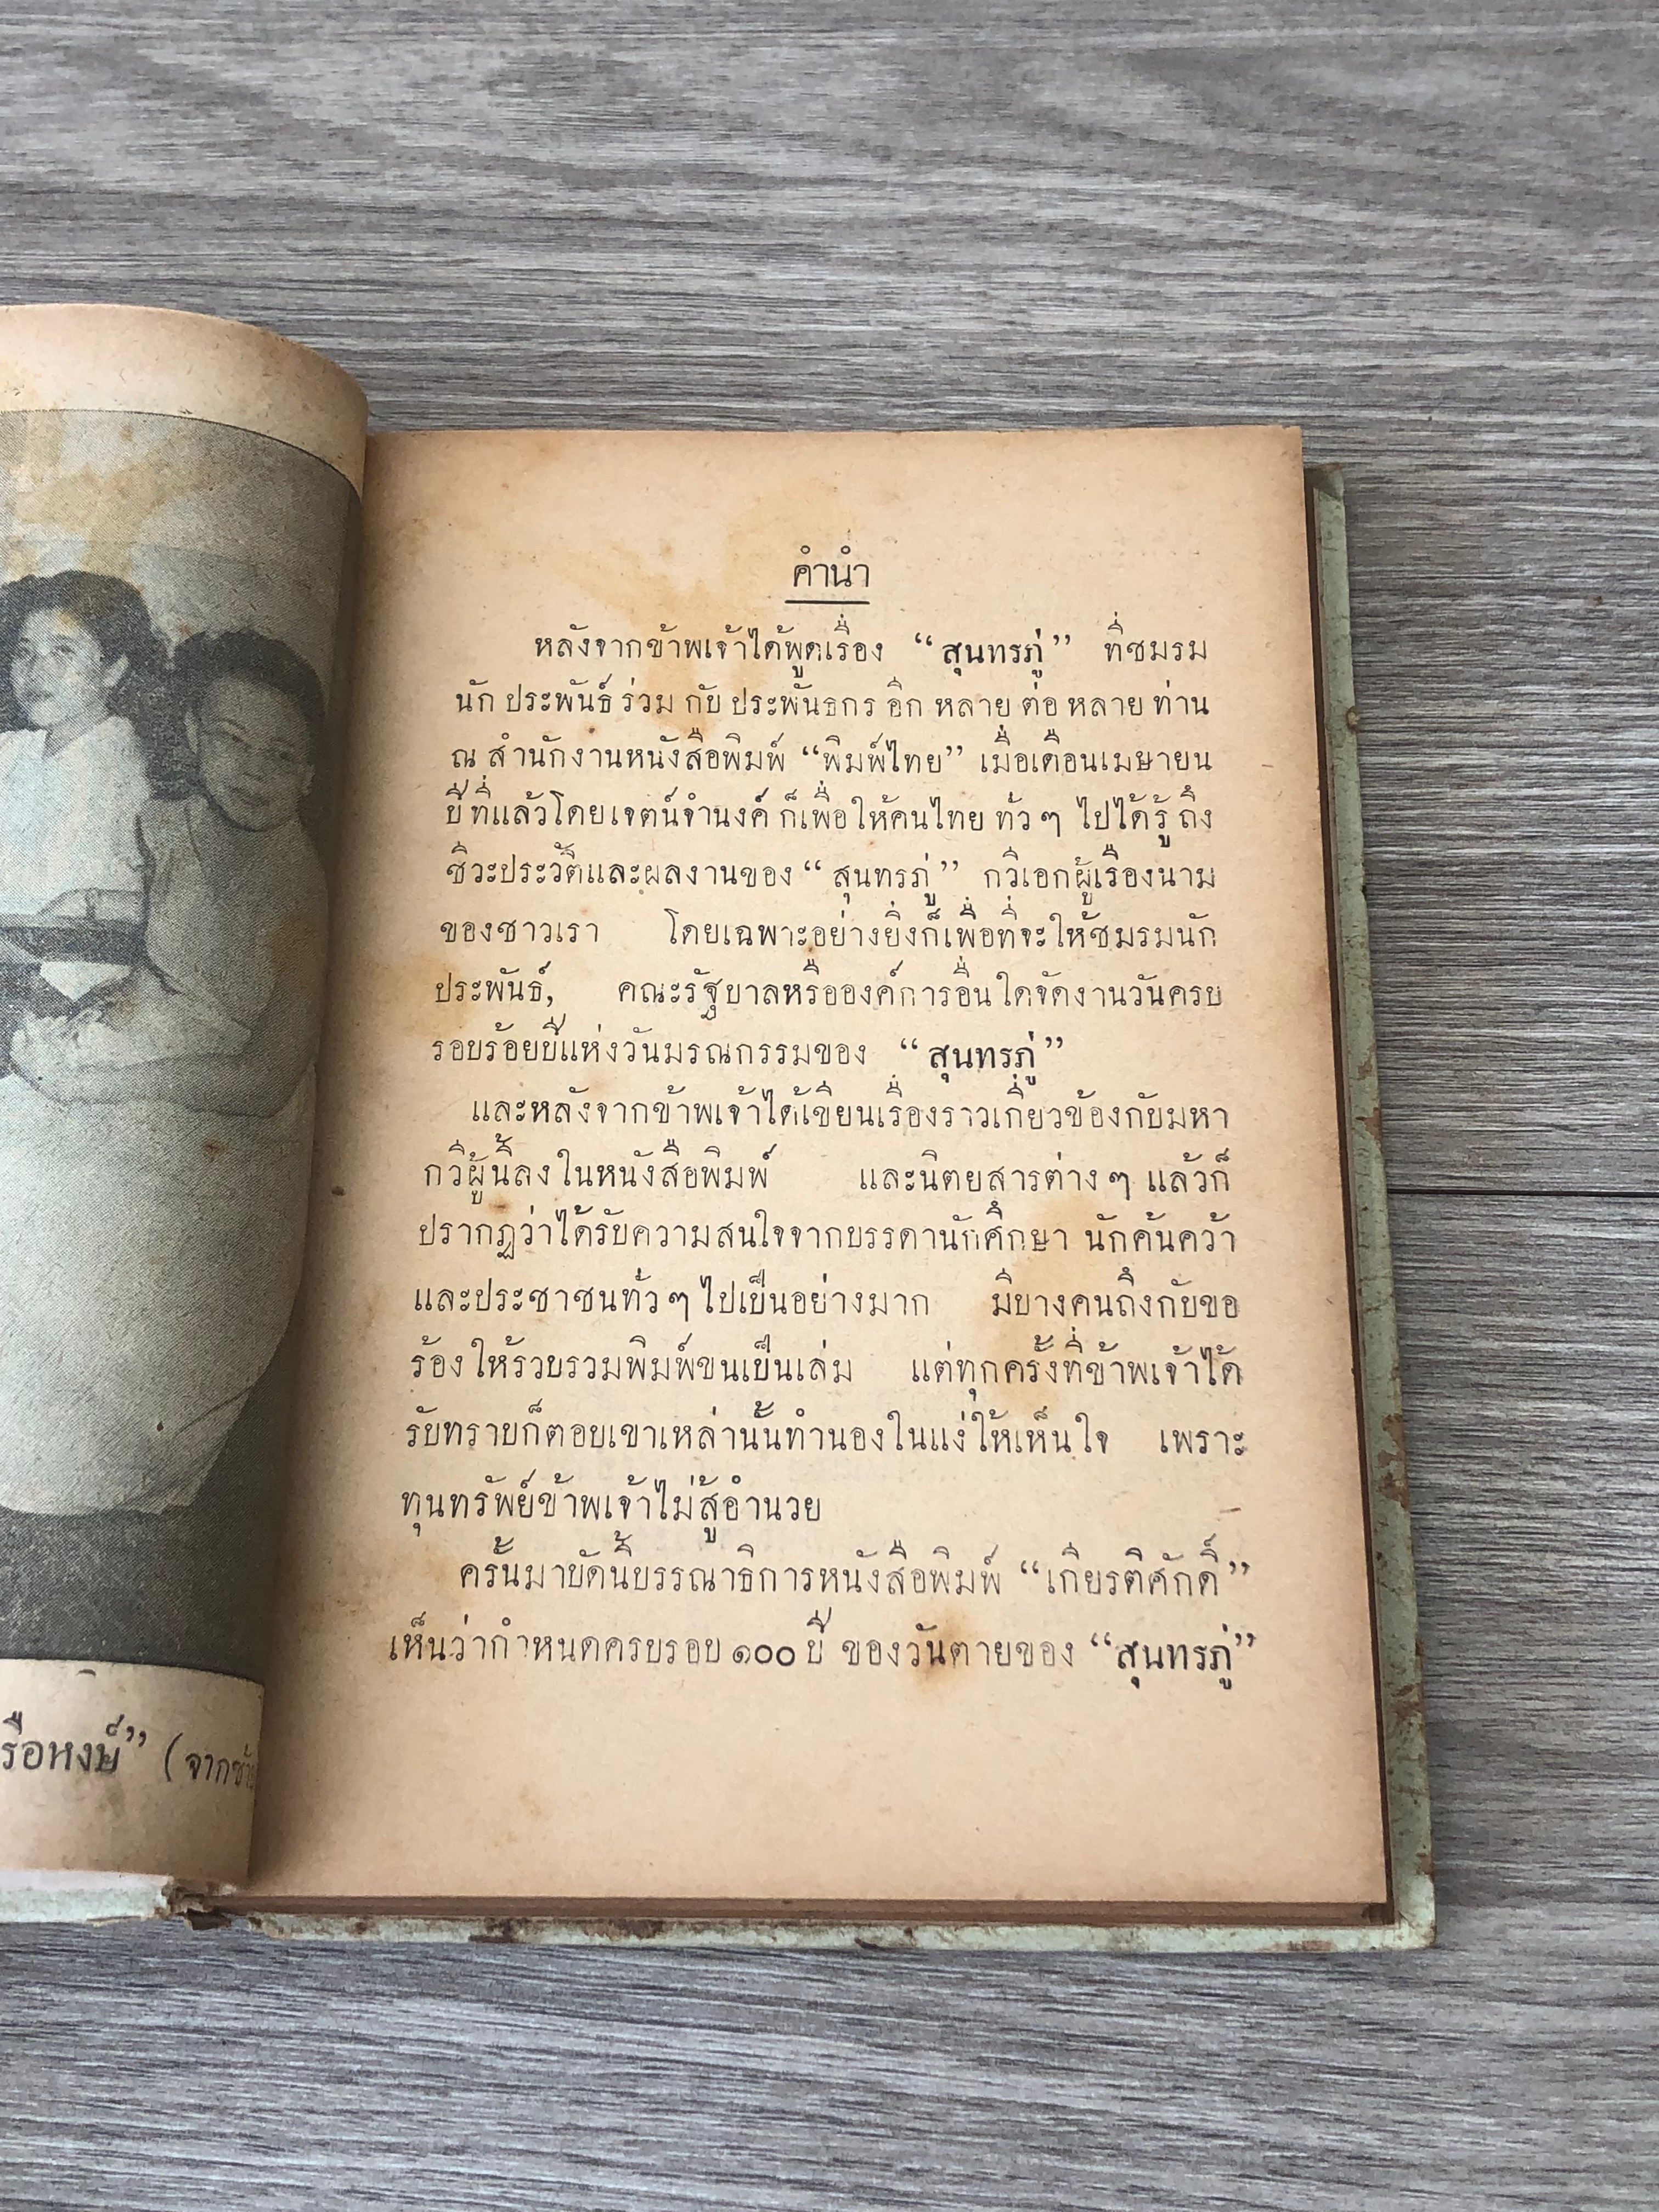 คำนำ
หลังจากข้าพเจ้าได้พูดเรื่อง “สุนทรภู่” ที่ชมรม
นักประพันธ์ร่วมกับประพันธกรอีกหลายต่อหลายท่าน
ณ สำนักงานหนังสือพิมพ์ “พิมพ์ไทย” เมื่อเดือนเมษายน
ปีที่แล้วโดยเจตน์จำนงค์ ก็เพื่อให้คนไทย ทั่วๆ ไปได้รู้ถึง
ชีวะประวัติและผลงานของ “สุนทรภู่” กวีเอกผู้เรืองนาม
ของชาวเรา โดยเฉพาะอย่างยิ่งก็เพื่อที่จะให้ชมรมนัก
ประพันธ์, คณะรัฐบาลหรือองค์การอื่นใดจัดงานวันครบ
รอบร้อยปีแห่งวันมรณกรรมของ “สุนทรภู่”
และหลังจากข้าพเจ้าได้เขียนเรื่องราวเกี่ยวข้องกับมหา
กวีผู้นี้ลงในหนังสือพิมพ์ และนิตยสารต่างๆ แล้วก็
ปรากฏว่าได้รับความสนใจจากบรรดานักศึกษา นักค้นคว้า
และประชาชนทั่วๆ ไปเป็นอย่างมาก มีบางคนถึงกับขอ
ร้องให้รวบรวมพิมพ์ขนเป็นเล่ม แต่ทุกครั้งที่ข้าพเจ้าได้
รับทราบก็ตอบเขาเหล่านั้นทำนองในแง่ให้เห็นใจ เพราะ
ทุนทรัพย์ข้าพเจ้าไม่สู้อำนวย
ครั้นมาบัดนี้บรรณาธิการหนังสือพิมพ์ “เกียรติศักดิ์”
เห็นว่ากำหนดครบรอบ ๑๐๐ ปี ของวันตายของ “สุนทรภู่”
รือหงษ์” (จากซ้าย